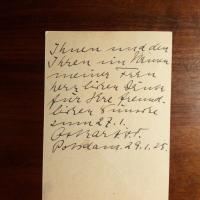 Ihnen und den
Ihren im Namen
meiner Frau
herzlichen Dank
für Ihre freund-
lichen Wünsche
zum 27.1.
Potsdam. 29.1.25.